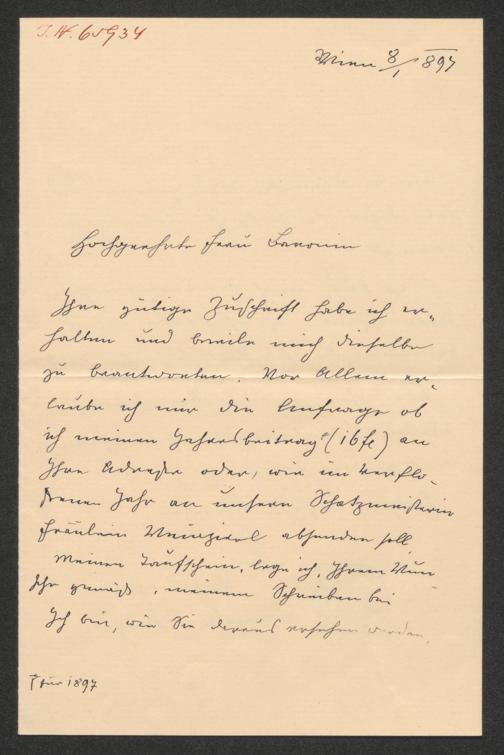 J.N. 65934
Wien 8/1 897
Hochgeehrte Frau Baronin
Ihre gütige Zuschrift habe ich er-
halten und beeile mich dieselbe
zu beantworten. Vor Allem er-
laube ich mir die Anfrage ob
ich meinen Jahresbeitrag (10 fl) an
Ihre Adresse oder, wie im verflo-
ssenen Jahr an unsere Schatzmeisterin
Fräulein absenden soll.
Meinen Taufschein, lege ich, Ihrem Wun-
sche gemäß, meinem Schreiben bei
Ich bin, wie Sie daraus ersehen werden,
für 1897